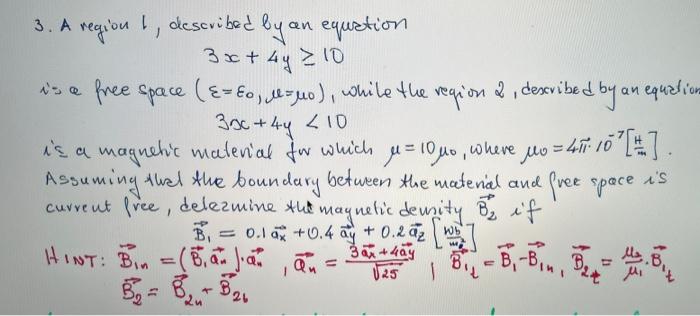 3. A region 1, described by an equation
3x + 4y ≥ 10
is a free space (ε=ε₀, μ=μ₀), while the region 2, described by an equation
3x+4y < 10
is a magnetic material for which μ = 10μ₀, where μ₀ = 4π·10⁻⁷ [H/m].
Assuming that the boundary between the material and free space is
current free, determine the magnetic density B⃗₂ if
B⃗₁ = 0.1 a⃗x + 0.4 a⃗y + 0.2 a⃗z [Wb/m²]
HINT: B⃗₁n = (B⃗₁ a⃗n)·a⃗n, a⃗n = (3a⃗x + 4a⃗y)/√25, B⃗₁t = B⃗₁ - B⃗₁n, B⃗₂t = μ₂/μ₁ · B⃗₁t
B⃗₂ = B⃗₂n + B⃗₂t